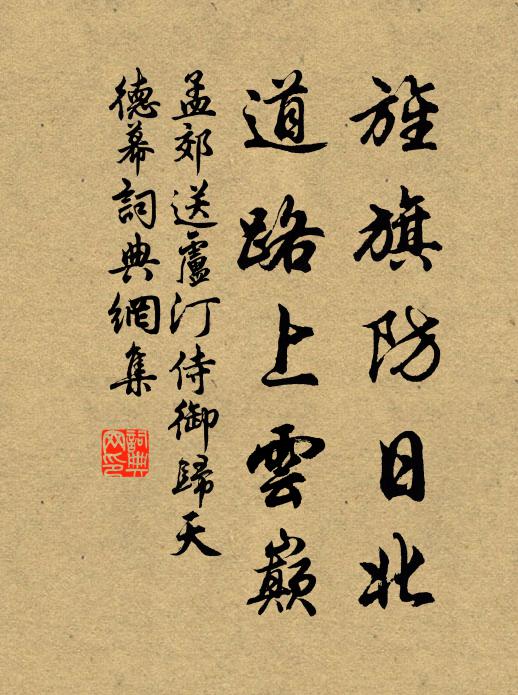 旌旗防日北
道路上雲巔
孟郊送盧汀侍御歸天
德幕詞典網集
詞典
网印